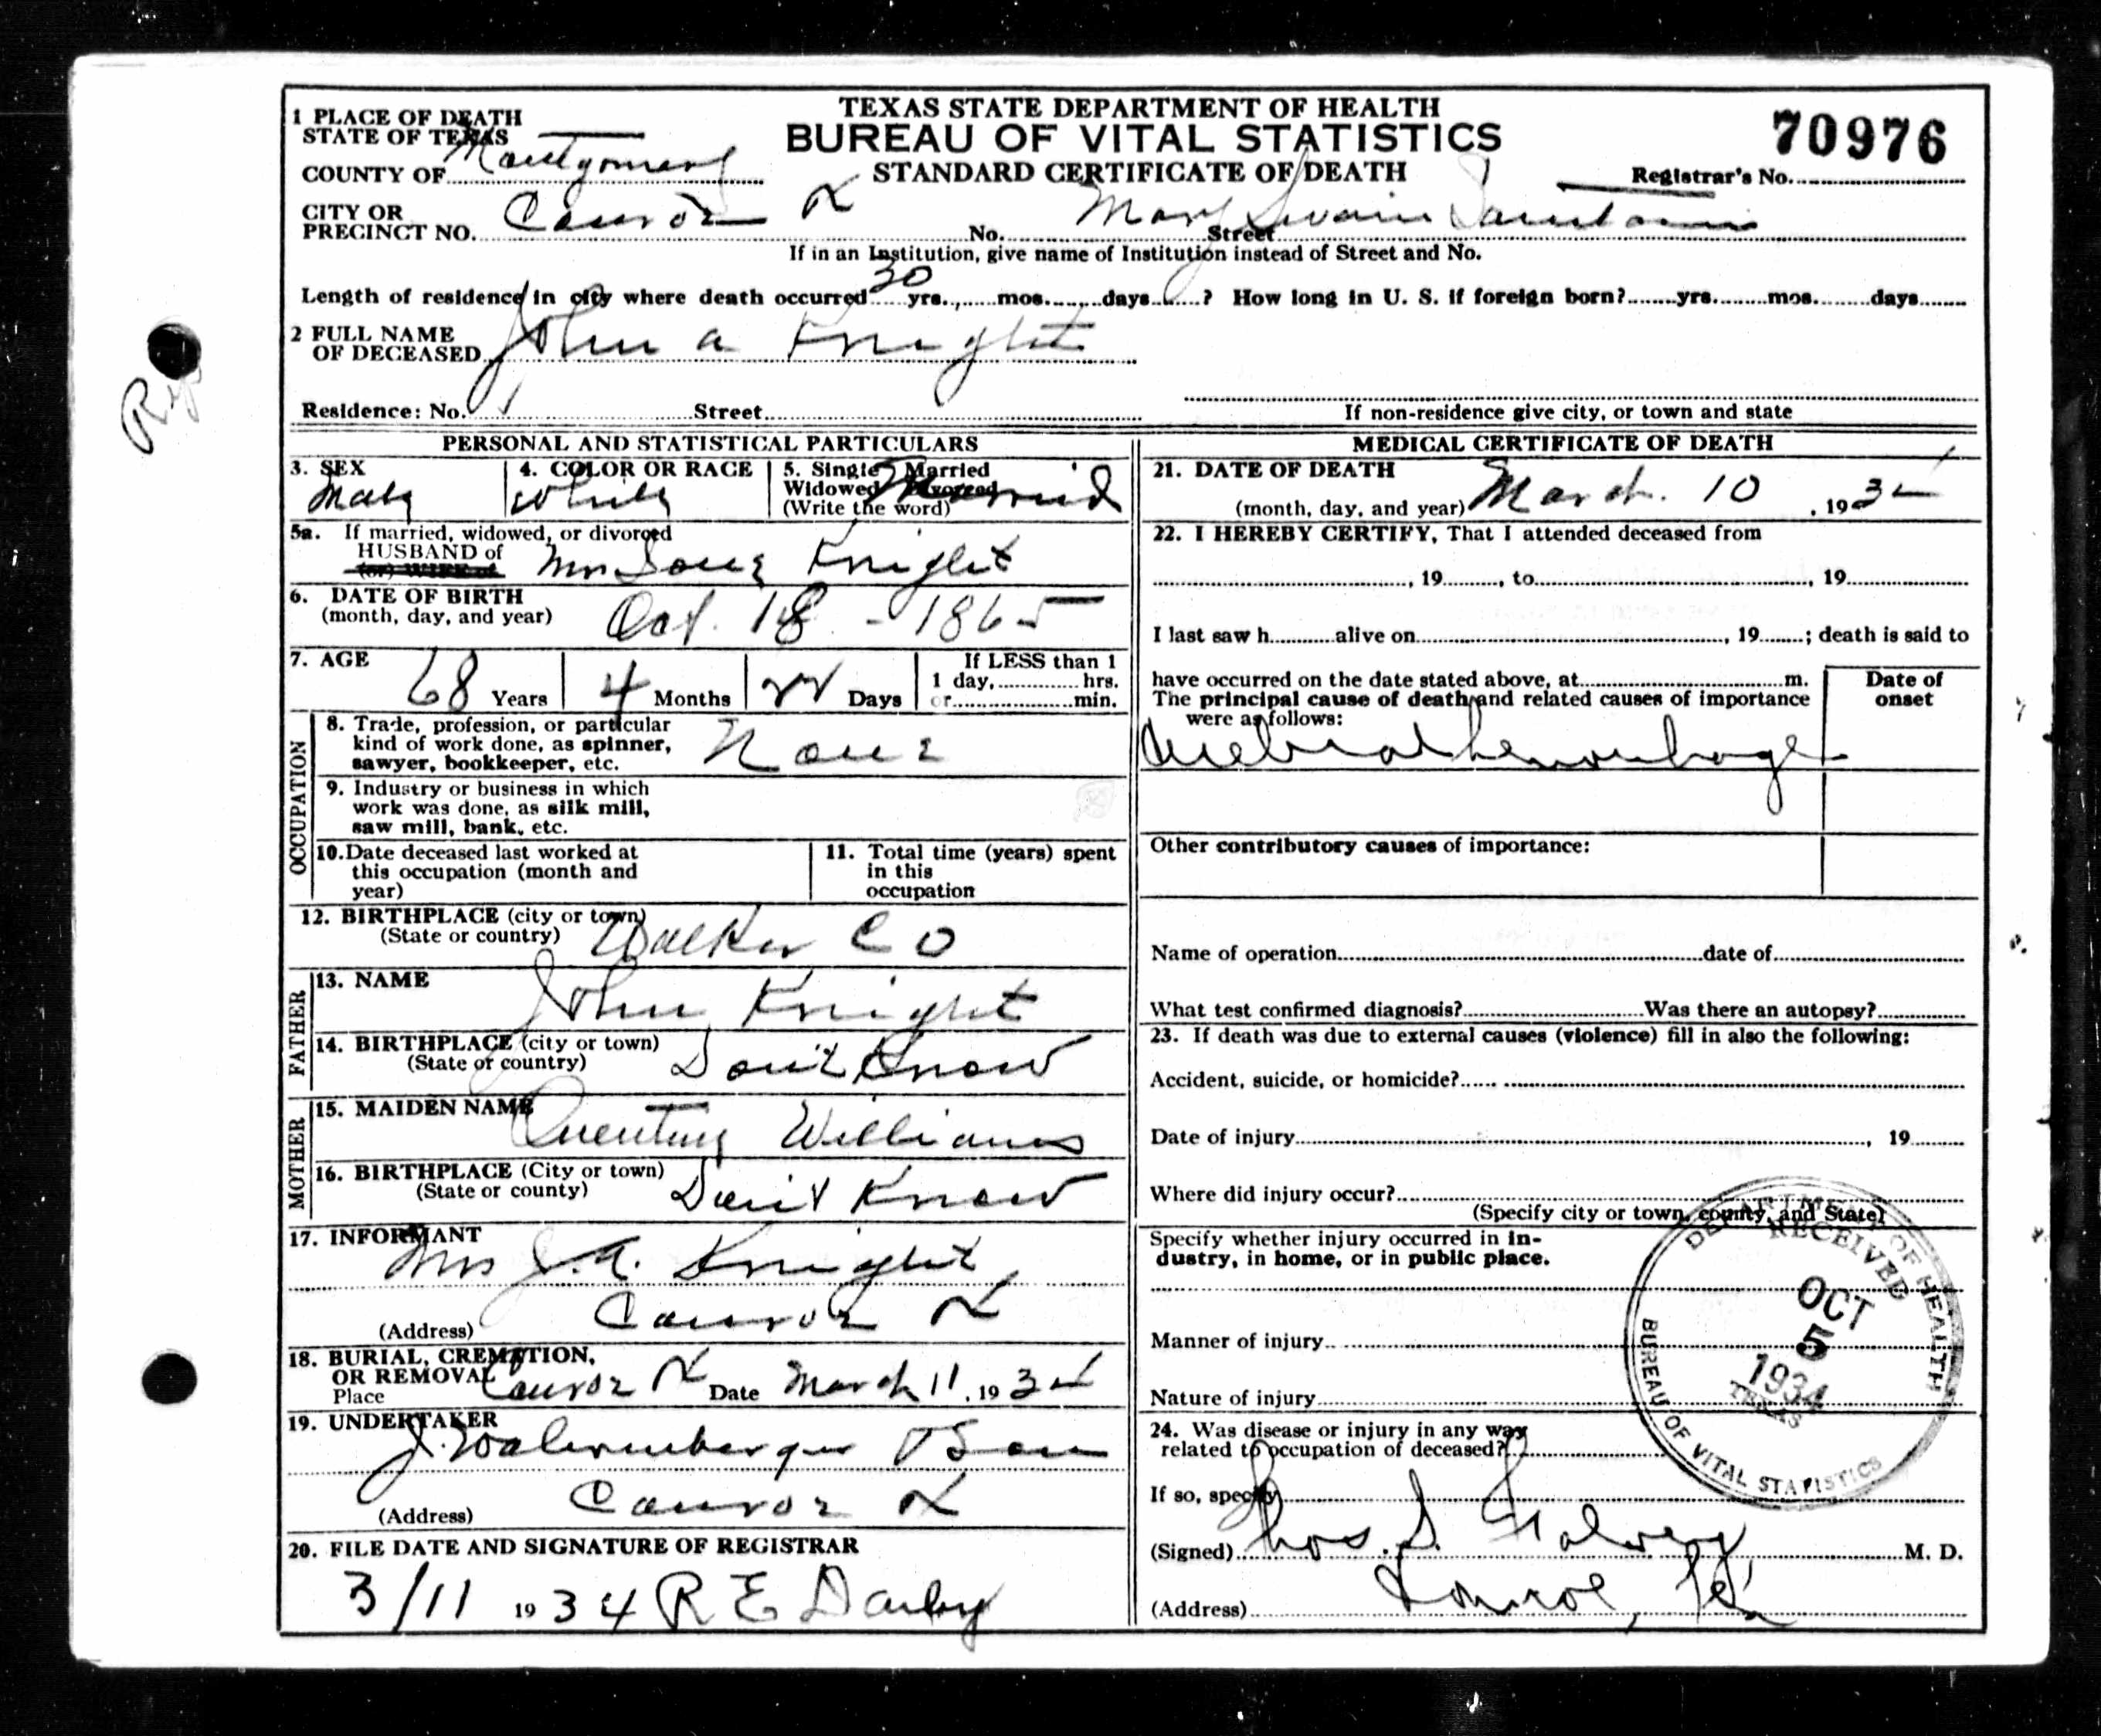 TEXAS STATE DEPARTMENT OF HEALTH
BUREAU OF VITAL STATISTICS
STANDARD CERTIFICATE OF DEATH
70976
Registrar's No.
1 PLACE OF DEATH
STATE OF TEXAS
COUNTY OF Montgomery
CITY OR
PRECINCT NO. Conroe Tx No. Street Mary Swain
If in an Institution, give name of Institution instead of Street and No.
Length of residence in city where death occurred 30 yrs. mos. days ? How long in U. S. if foreign born? yrs. mos. days
2 FULL NAME
OF DECEASED John A Knight
Residence: No. Street
If non-residence give city, or town and state
PERSONAL AND STATISTICAL PARTICULARS
3. SEX
Male
4. COLOR OR RACE
White
5. Single Married
Widowed Divorced
(Write the word) Married
5a. If married, widowed, or divorced
HUSBAND of
(or) WIFE of
Mrs Knight
6. DATE OF BIRTH
(month, day, and year) Oct. 18 - 1865
7. AGE 68 Years 4 Months 22 Days
If LESS than 1
1 day, hrs.
or min.
OCCUPATION
8. Trade, profession, or particular
kind of work done, as spinner,
sawyer, bookkeeper, etc. None
9. Industry or business in which
work was done, as silk mill,
saw mill, bank, etc.
10. Date deceased last worked at
this occupation (month and
year)
11. Total time (years) spent
in this
occupation
12. BIRTHPLACE (city or town)
(State or country) Walker CO
FATHER
13. NAME John Knight
14. BIRTHPLACE (city or town)
(State or country) Don't Know
MOTHER
15. MAIDEN NAME Williams
16. BIRTHPLACE (City or town)
(State or county) Don't Know
17. INFORMANT
Mrs J. A. Knight
(Address) Conroe Tx
18. BURIAL, CREMATION,
OR REMOVAL
Place Conroe Tx Date March 11, 1934
19. UNDERTAKER
J. & Son
(Address) Conroe Tx
20. FILE DATE AND SIGNATURE OF REGISTRAR
3/11 1934 R E Darby
MEDICAL CERTIFICATE OF DEATH
21. DATE OF DEATH
(month, day, and year) March 10, 1934
22. I HEREBY CERTIFY, That I attended deceased from
, 19 , to , 19
I last saw h alive on , 19 ; death is said to
have occurred on the date stated above, at m.
The principal cause of death and related causes of importance
were as follows:
Date of
onset
Cerebral hemorrhage
Other contributory causes of importance:
Name of operation date of
What test confirmed diagnosis? Was there an autopsy?
23. If death was due to external causes (violence) fill in also the following:
Accident, suicide, or homicide?
Date of injury , 19
Where did injury occur?
(Specify city or town, county, and State)
Specify whether injury occurred in in-
dustry, in home, or in public place.
Manner of injury
Nature of injury
24. Was disease or injury in any way
related to occupation of deceased?
If so, specify
(Signed) Thos. S. Falvey M. D.
(Address) Conroe, Tex
DEPARTMENT OF HEALTH
RECEIVED
OCT
5
1934
TEXAS
BUREAU OF VITAL STATISTICS